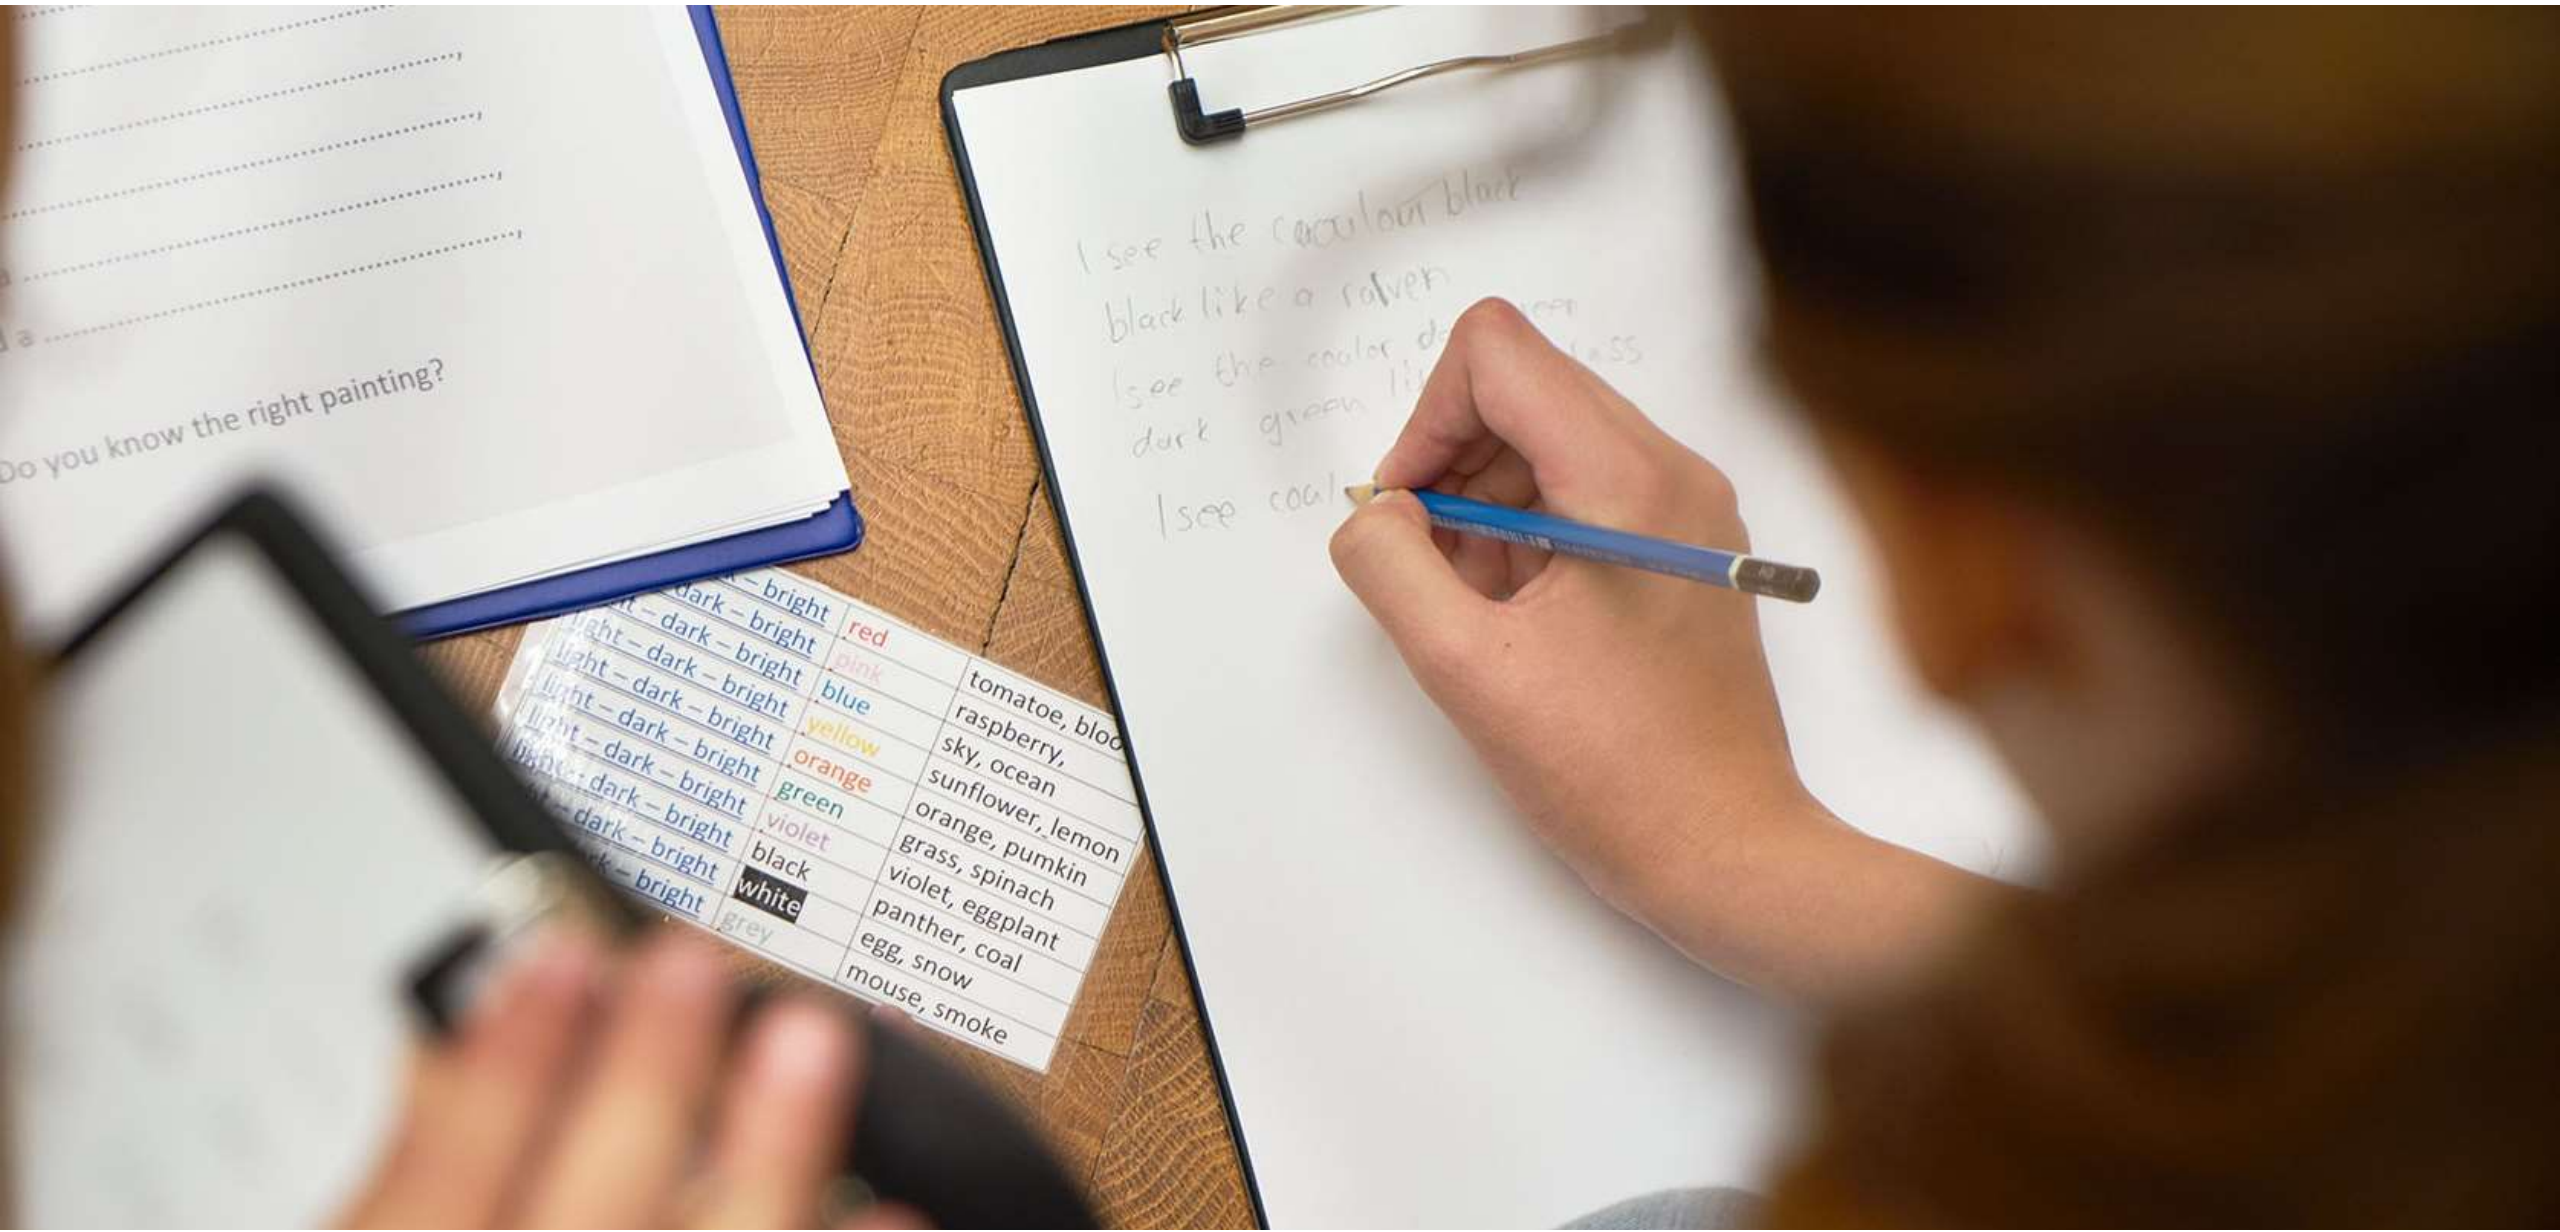 a
Do you know the right painting?
– bright
dark – bright red tomatoe,
– dark – bright pink raspberry,
light – dark – bright blue sky, ocean
light – dark – bright yellow sunflower, lemon
light – dark – bright orange orange, pumkin
light – dark – bright green grass, spinach
light – dark – bright violet violet, eggplant
dark – bright black panther, coal
dark – bright white egg, snow
– bright grey mouse, smoke
I see the black
black like a
I see the coolor
dark green
I see